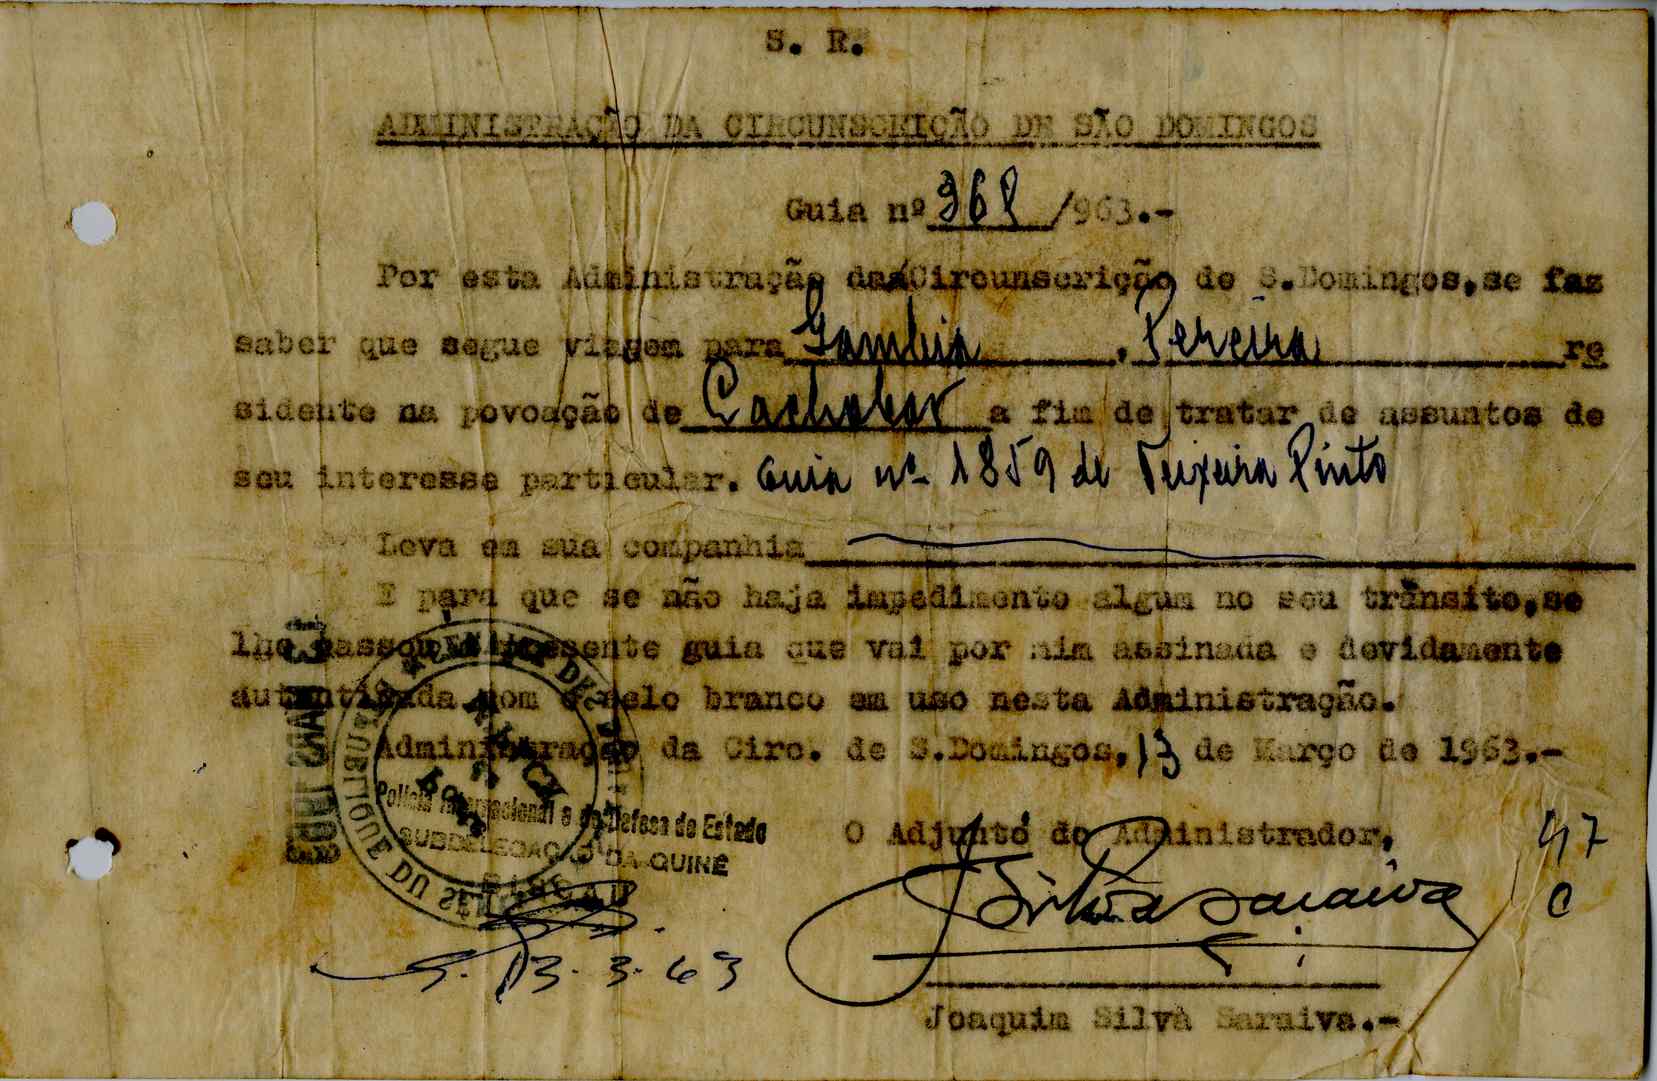 S. R.
ADMINISTRAÇÃO DA CIRCUNSCRIÇÃO DE SÃO DOMINGOS
Guia nº 968 /963.-
Por esta Administração da Circunscrição de S.Domingos,se faz
saber que segue viagem para Gambia , Pereira re
sidente na povoação de a fim de tratar de assuntos de
seu interesse particular. Guia nº 1859 de Teixeira Pinto
Leva em sua companhia
E para que se não haja impedimento algum no seu trânsito,se
lhe passou a presente guia que vai por mim assinada e devidamente
autenticada com o selo branco em uso nesta Administração.
Administração da Circ. de S.Domingos, 13 de Março de 1963.-
REPUBLIQUE DU SENEGAL
Policia Internacional e de Defesa do Estado
SUBDELEGAÇÃO DA GUINÉ
BISSAU
O Adjunto do Administrador,
47
C
JSilva Saraiva
13-3-63
Joaquim Silva Saraiva.-